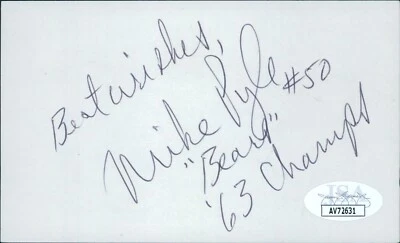 Best wishes,
Mike Pyle #50
"Bears"
'63 Champs
JSA
AV72631